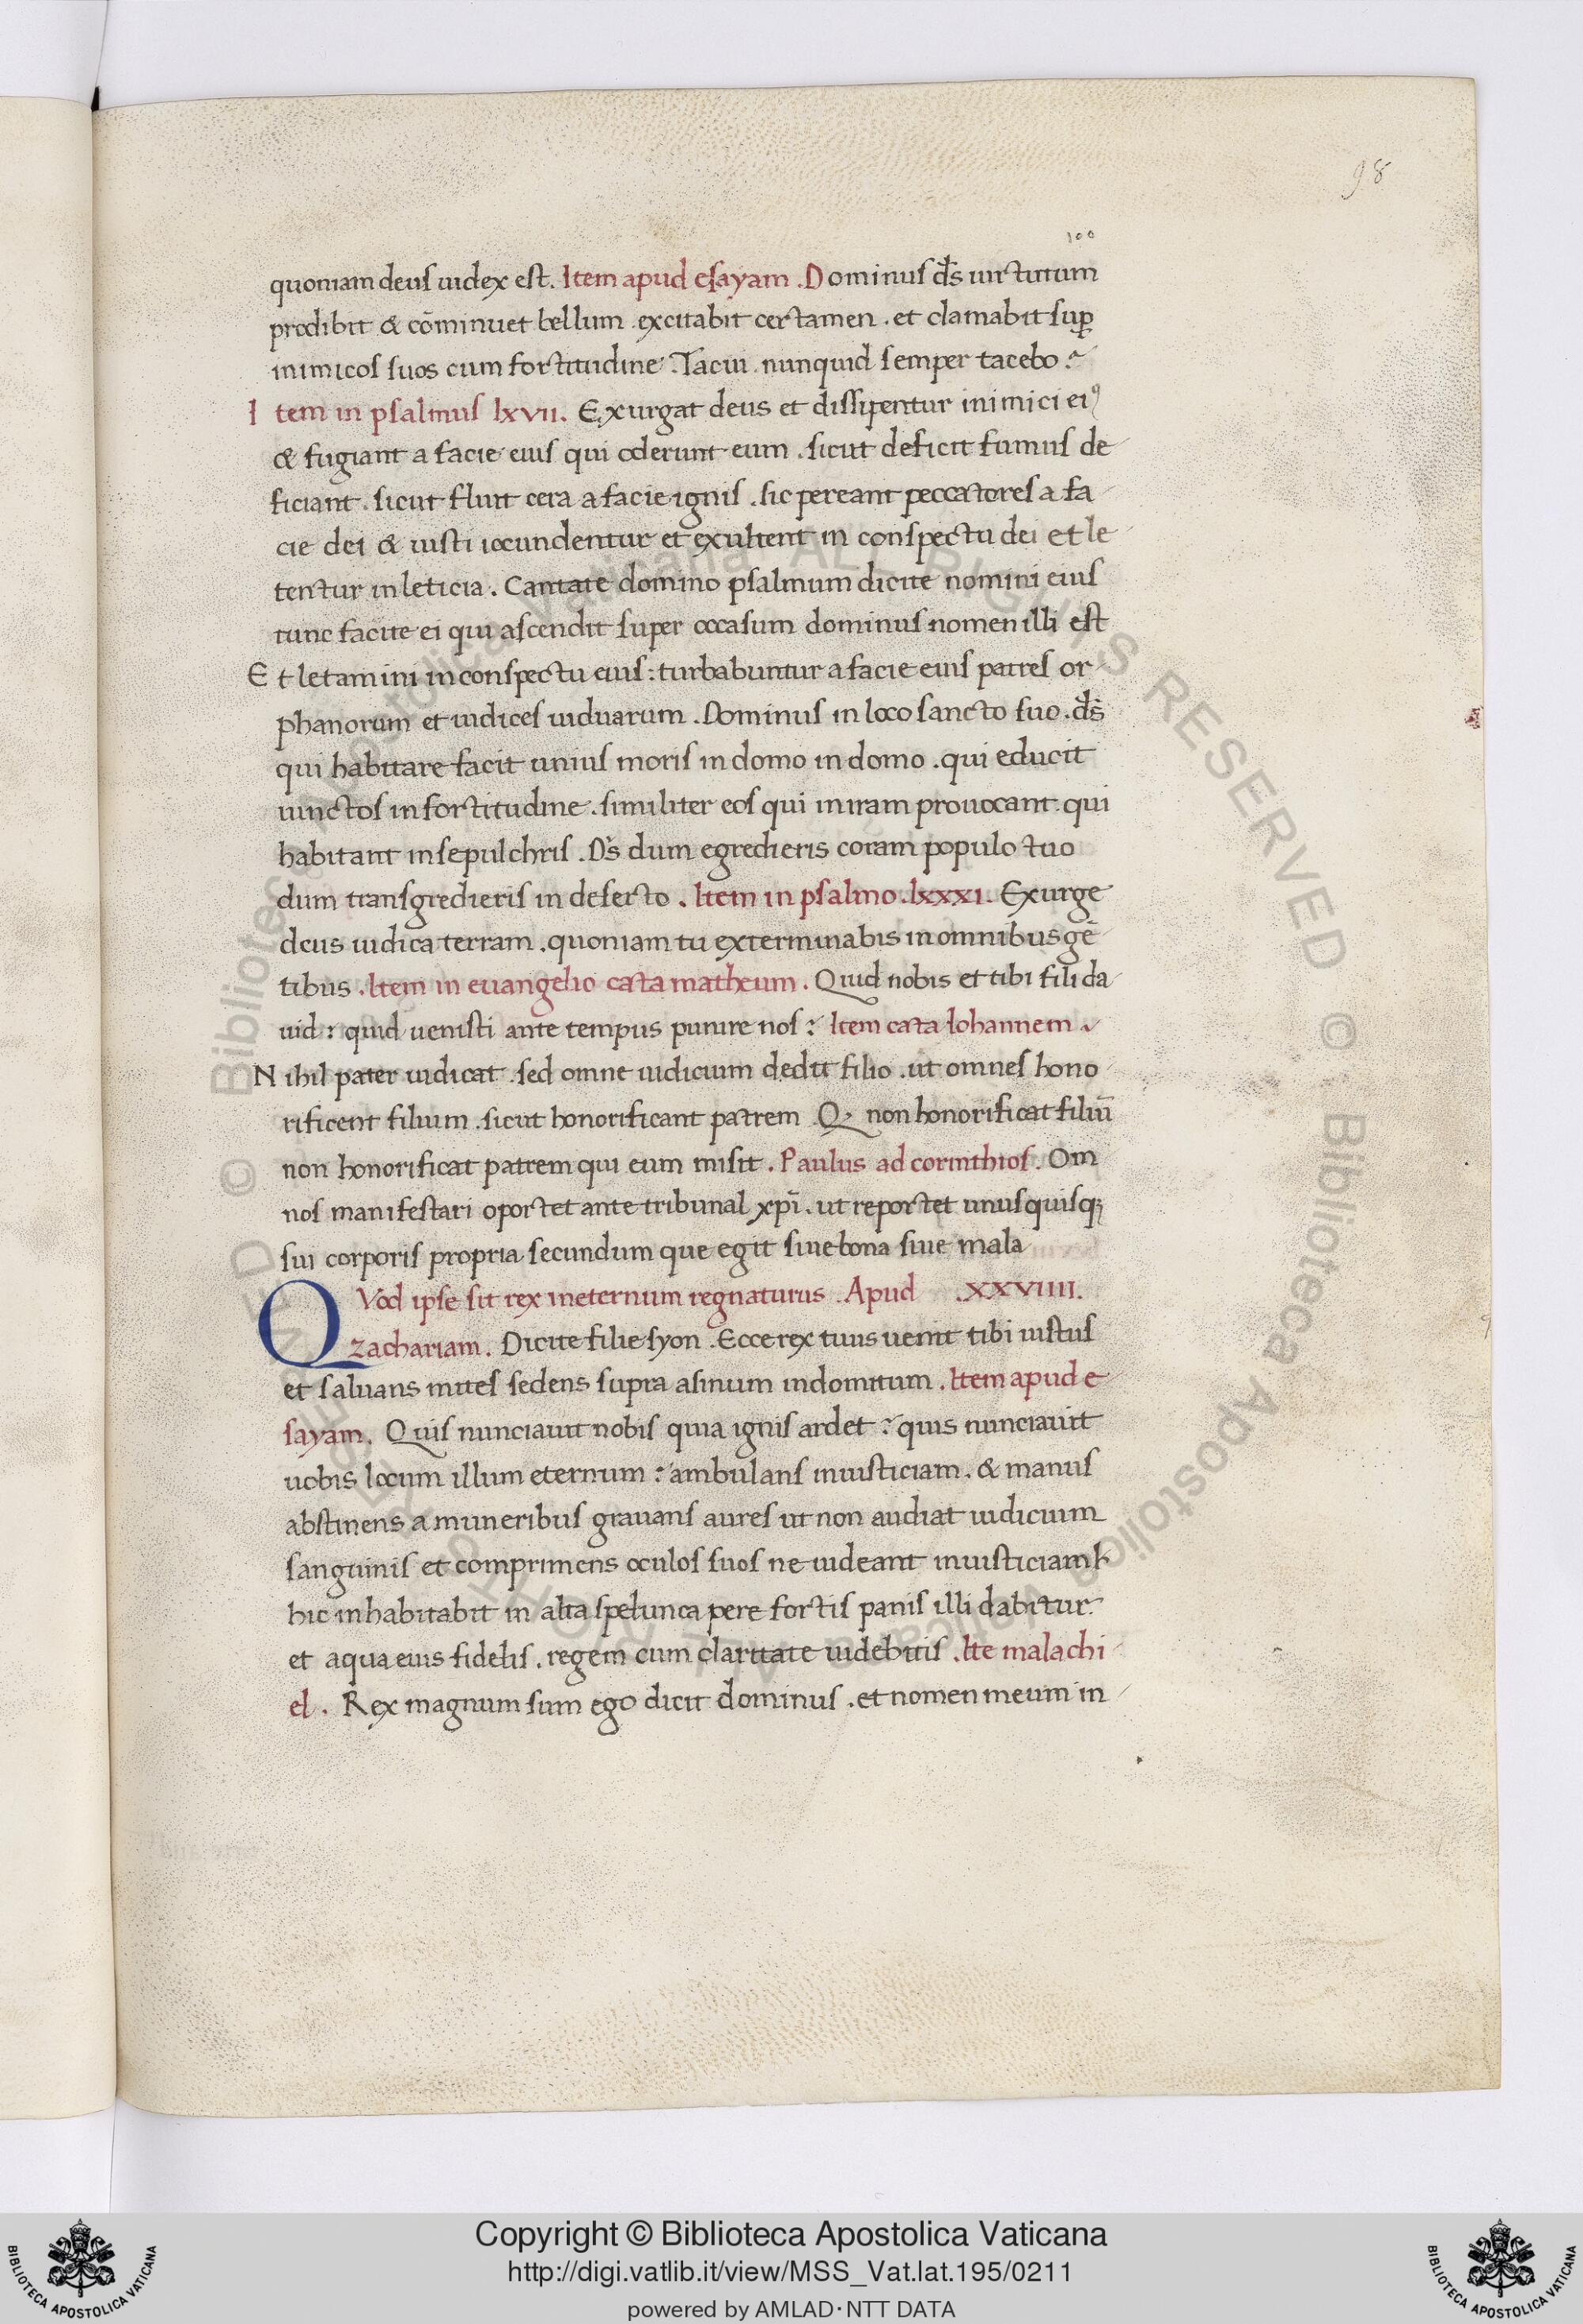 98
100
quoniam deus iudex est. Item apud esayam. Dominus d̄s uirtutum
prodibit & cōminuet bellum. excitabit certamen. et clamabit sup̱
inimicos suos cum fortitudine. Tacui. nunquid semper tacebo?
Item in psalmus lxvii. Exurgat deus et dissipentur inimici eiꝰ
& fugiant a facie eius qui oderunt eum. sicut deficit fumus de
ficiant. sicut fluit cera a facie ignis. sic pereant peccatores a fa
cie dei & iusti iocundentur et exultent in conspectu dei et le
tentur in leticia. Cantate domino psalmum dicite nomini eius
tunc facite ei qui ascendit super occasum dominus nomen illi est
Et letamini in conspectu eius: turbabuntur a facie eius patres or
phanorum et iudices uiduarum. Dominus in loco sancto suo. d̄s
qui habitare facit unius moris in domo in domo. qui educit
uinctos in fortitudine. similiter eos qui in iram prouocant. qui
habitant in sepulchris. D̄s dum egredieris coram populo tuo
dum transgredieris in deserto. Item in psalmo. lxxxi. Exurge
deus iudica terram. quoniam tu exterminabis in omnibus gē
tibus. Item in euangelio cata matheum. Quid nobis et tibi fili da
uid? quid uenisti ante tempus punire nos? Item cata Iohannem
Nihil pater iudicat. sed omne iudicium dedit filio. ut omnes hono
rificent filium. sicut honorificant patrem Q. non honorificat filiū
non honorificat patrem qui eum misit. Paulus ad corinthios. Om
nos manifestari oportet ante tribunal xp̄i. ut reportet unusquisqꝫ
sui corporis propria secundum que egit siue bona siue mala
QVod ipse sit rex in eternum regnaturus. Apud .XXVIIII.
zachariam. Dicite filie syon. Ecce rex tuus uenit tibi iustus
et saluans mites sedens supra asinum indomitum. Item apud e
sayam. Quis nunciauit nobis quia ignis ardet? quis nunciauit
uobis locum illum eternum? ambulans iniusticiam. & manus
abstinens a muneribus grauans aures ut non audiat iudicium
sanguinis et comprimens oculos suos ne uideant iniusticiam h
hic inhabitabit in alta spelunca pere fortis panis illi dabitur.
et aqua eius fidelis. regem cum claritate uidebitis. Ite malachi
el. Rex magnum sum ego dicit dominus. et nomen meum in
© Biblioteca Apostolica Vaticana ALL RIGHTS RESERVED © Biblioteca Apostolica Vaticana ALL RIGHTS RESERVED
Copyright © Biblioteca Apostolica Vaticana
http://digi.vatlib.it/view/MSS_Vat.lat.195/0211
powered by AMLAD·NTT DATA
BIBLIOTECA APOSTOLICA VATICANA
BIBLIOTECA APOSTOLICA VATICANA